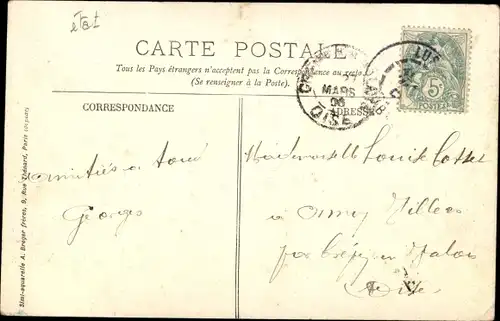 etat
CARTE POSTALE
Tous les Pays étrangers n'acceptent pas la Correspondance au recto
(Se renseigner à la Poste).
CORRESPONDANCE
ADRESSE
MARS
OISE
5c
POSTES
amitiés a tous
Georges
Mademoiselle Louise Cosset
a Ormoy Villers
par Crépy en Valois
Oise
Simi-aquarelle A. Breger frères, 9, Rue Thénard, Paris